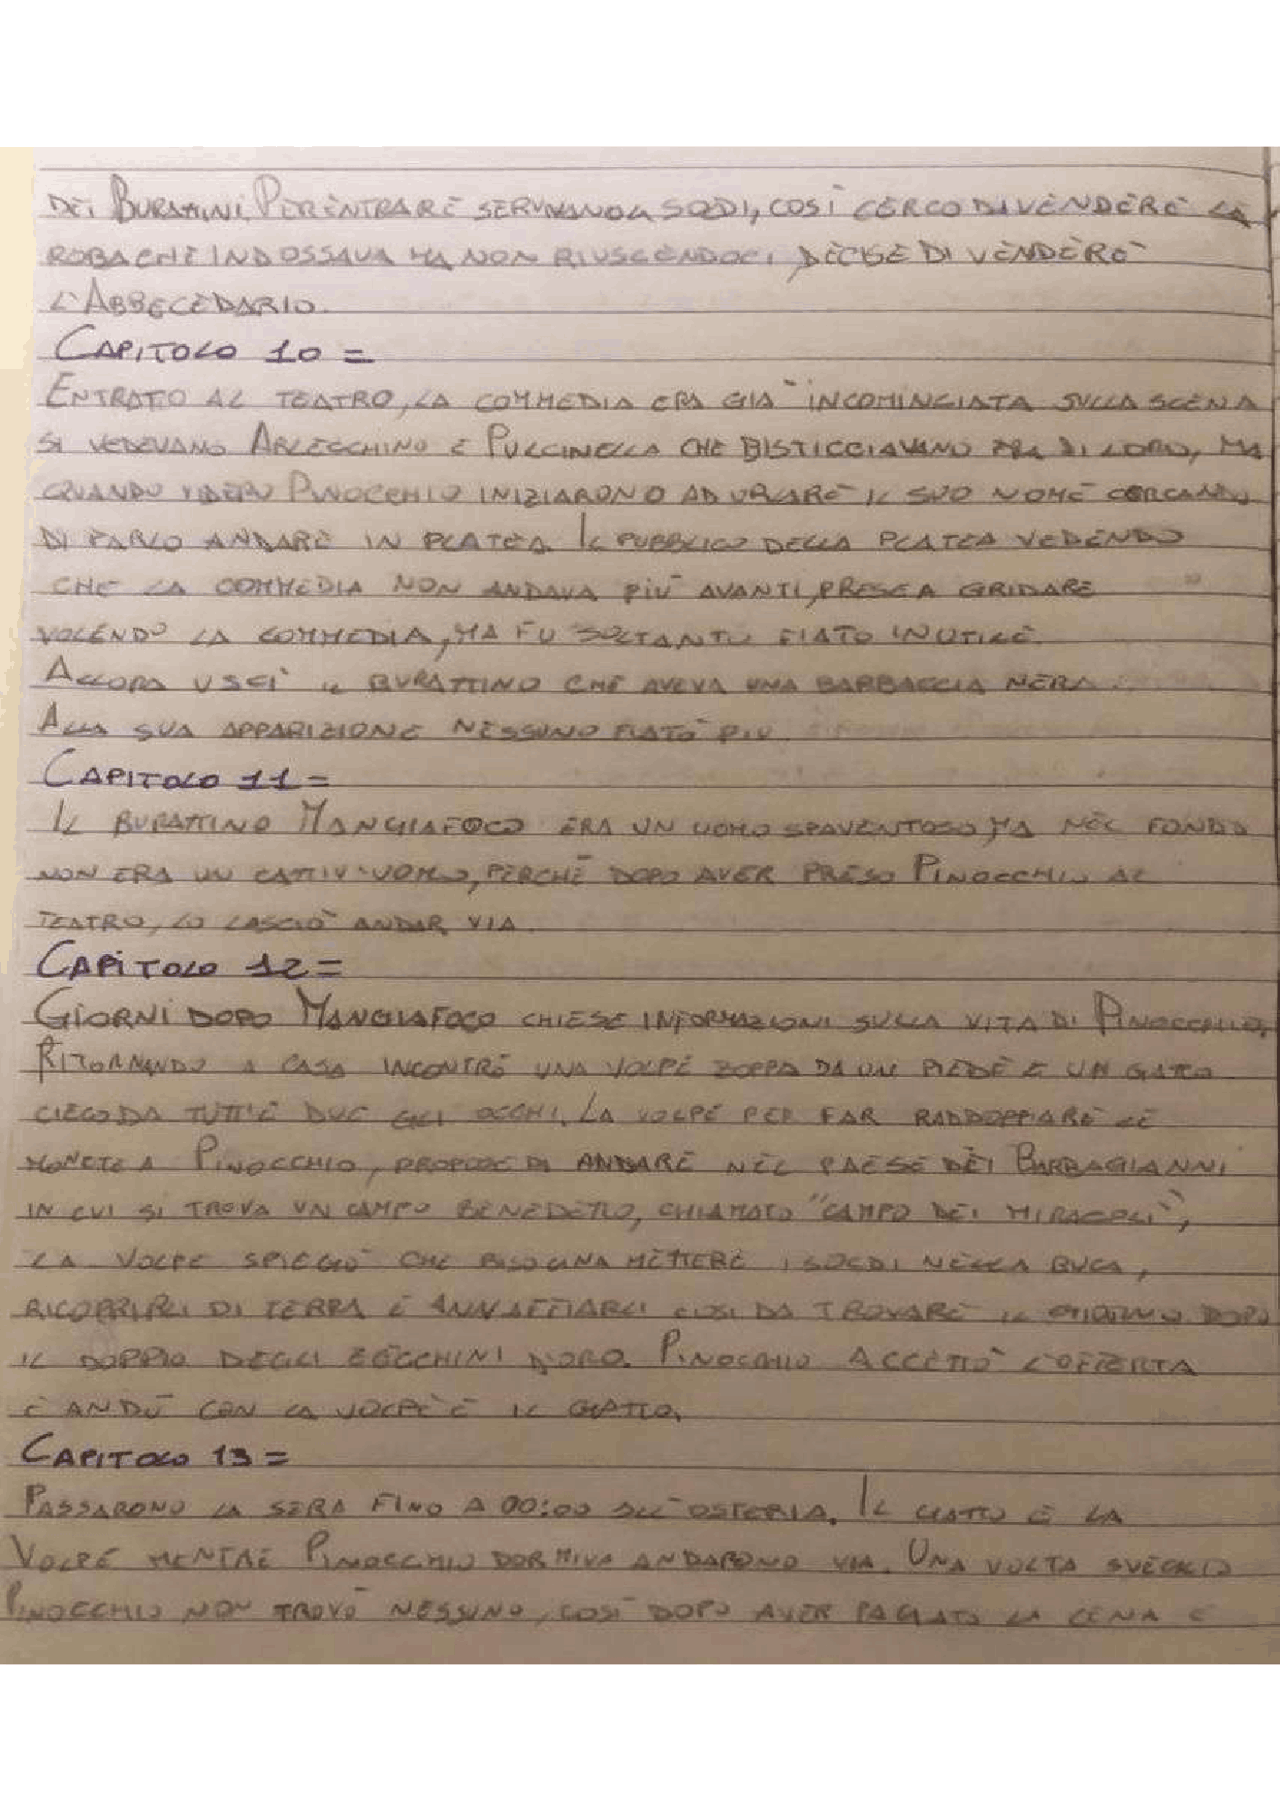 DEI BURATTINI. PER ENTRARE SERVIVANO 4 SOLDI, COSÌ CERCO DI VENDERE LA
ROBA CHE INDOSSAVA MA NON RIUSCENDOCI, DECISE DI VENDERE
L'ABBECEDARIO.
CAPITOLO 10 =
ENTRATO AL TEATRO, LA COMMEDIA ERA GIÀ INCOMINCIATA SULLA SCENA
SI VEDEVANO ARLECCHINO E PULCINELLA CHE BISTICCIAVANO FRA DI LORO, MA
QUANDO VIDERO PINOCCHIO INIZIARONO AD URLARE IL SUO NOME CERCANDO
DI FARLO ANDARE IN PLATEA. IL PUBBLICO DELLA PLATEA VEDENDO
CHE LA COMMEDIA NON ANDAVA PIÙ AVANTI, PRESE A GRIDARE
VOLENDO LA COMMEDIA, MA FU SOLTANTO FIATO INUTILE.
ALLORA USCÌ IL BURATTINO CHE AVEVA UNA BARBACCIA NERA.
ALLA SUA APPARIZIONE NESSUNO FIATÒ PIÙ.
CAPITOLO 11 =
IL BURATTINO MANGIAFOCO ERA UN UOMO SPAVENTOSO, MA NEL FONDO
NON ERA UN CATTIV'UOMO, PERCHÉ DOPO AVER PRESO PINOCCHIO AL
TEATRO, LO LASCIÒ ANDAR VIA.
CAPITOLO 12 =
GIORNI DOPO MANGIAFOCO CHIESE INFORMAZIONI SULLA VITA DI PINOCCHIO.
RITORNANDO A CASA INCONTRÒ UNA VOLPE ZOPPA DA UN PIEDE E UN GATTO
CIECO DA TUTT'E DUE GLI OCCHI. LA VOLPE PER FAR RADDOPPIARE LE
MONETE A PINOCCHIO, PROPOSE DI ANDARE NEL PAESE DEI BARBAGIANNI
IN CUI SI TROVA UN CAMPO BENEDETTO, CHIAMATO "CAMPO DEI MIRACOLI",
LA VOLPE SPIEGÒ CHE BISOGNA METTERE I SOLDI NELLA BUCA,
RICOPRIRLI DI TERRA E ANNAFFIARLI COSÌ DA TROVARE IL GIORNO DOPO
IL DOPPIO DEGLI ZECCHINI D'ORO. PINOCCHIO ACCETTÒ L'OFFERTA
E ANDÒ CON LA VOLPE E IL GATTO.
CAPITOLO 13 =
PASSARONO LA SERA FINO A 00:00 ALL'OSTERIA. IL GATTO E LA
VOLPE MENTRE PINOCCHIO DORMIVA ANDARONO VIA. UNA VOLTA SVEGLIO
PINOCCHIO NON TROVÒ NESSUNO, COSÌ DOPO AVER PAGATO LA CENA E